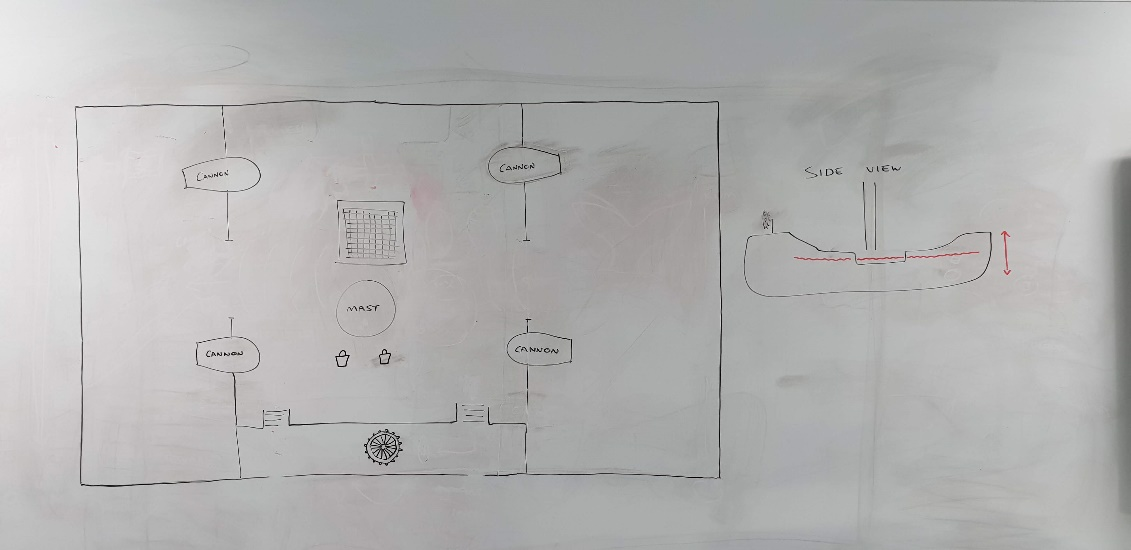 CANNON
CANNON
MAST
CANNON
CANNON
SIDE VIEW